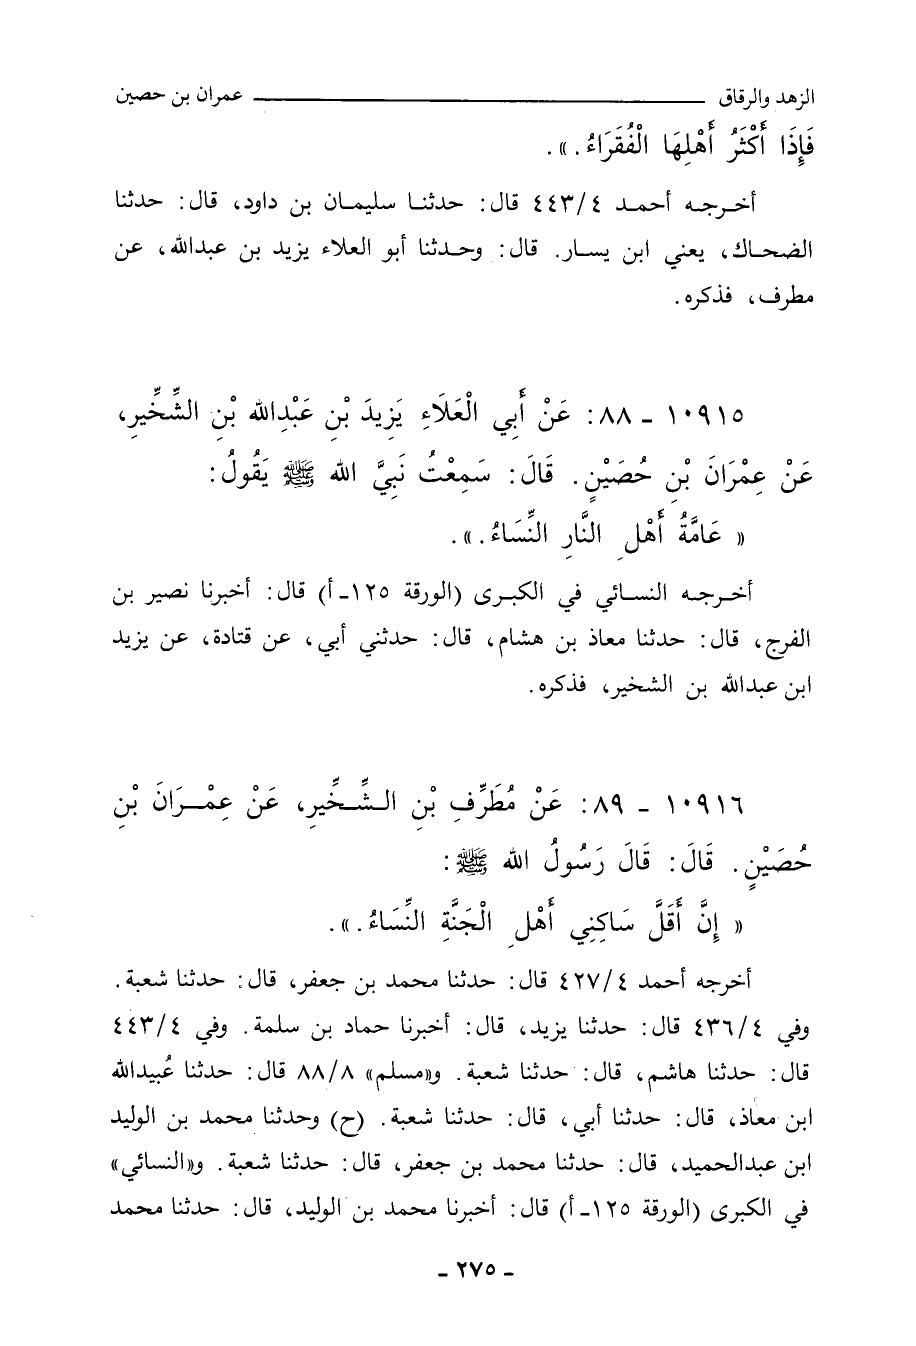 الزهد والرقاق ــــــــــــــــ عمران بن حصين
فَإِذَا أَكْثَرُ أَهْلِهَا الْفُقَرَاءُ.».
أخرجه أحمد ٤/٤٤٣ قال: حدثنا سليمان بن داود، قال: حدثنا
الضحاك، يعني ابن يسار. قال: وحدثنا أبو العلاء يزيد بن عبدالله، عن
مطرف، فذكره.
١٠٩١٥ - ٨٨: عَنْ أَبِي الْعَلَاءِ يَزِيدَ بْنِ عَبْدِالله بْنِ الشِّخِّيرِ،
عَنْ عِمْرَانَ بْنِ حُصَيْنٍ. قَالَ: سَمِعْتُ نَبِيَّ الله ﷺ يَقُولُ:
« عَامَّةُ أَهْلِ النَّارِ النِّسَاءُ.».
أخرجه النسائي في الكبرى (الورقة ١٢٥-أ) قال: أخبرنا نصير بن
الفرج، قال: حدثنا معاذ بن هشام، قال: حدثني أبي، عن قتادة، عن يزيد
ابن عبدالله بن الشخير، فذكره.
١٠٩١٦ - ٨٩: عَنْ مُطَرِّفِ بْنِ الشِّخِّيرِ، عَنْ عِمْرَانَ بْنِ
حُصَيْنٍ. قَالَ: قَالَ رَسُولُ الله ﷺ:
« إِنَّ أَقَلَّ سَاكِنِي أَهْلِ الْجَنَّةِ النِّسَاءُ.».
أخرجه أحمد ٤/٤٢٧ قال: حدثنا محمد بن جعفر، قال: حدثنا شعبة.
وفي ٤/٤٣٦ قال: حدثنا يزيد، قال: أخبرنا حماد بن سلمة. وفي ٤/٤٤٣
قال: حدثنا هاشم، قال: حدثنا شعبة. و«مسلم» ٨/٨٨ قال: حدثنا عُبيدالله
ابن معاذ، قال: حدثنا أبي، قال: حدثنا شعبة. (ح) وحدثنا محمد بن الوليد
ابن عبدالحميد، قال: حدثنا محمد بن جعفر، قال: حدثنا شعبة. و«النسائي»
في الكبرى (الورقة ١٢٥-أ) قال: أخبرنا محمد بن الوليد، قال: حدثنا محمد
- ٢٧٥ -